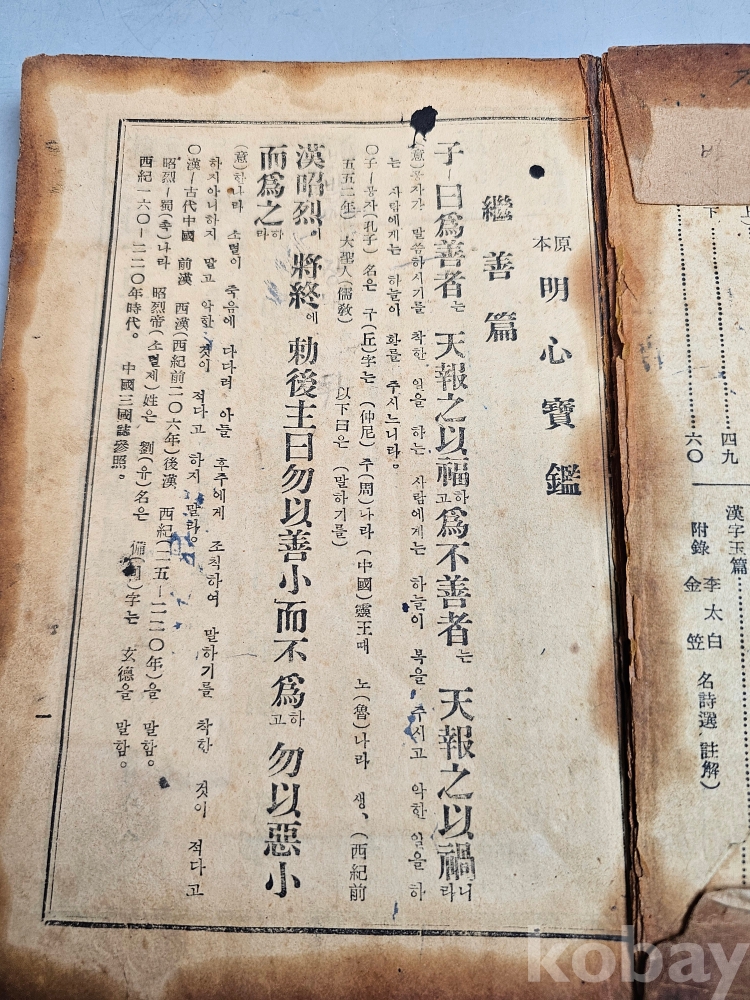 上
下
四九
六〇
漢字玉篇
附錄 李太白 金笠 名詩選 註解)
原本 明心寶鑑
繼善篇
子ㅣ曰爲善者는 天報之以福하고 爲不善者는 天報之以禍니라
(意)공자가 말씀하시기를 착한 일을 하는 사람에게는 하늘이 복을 주시고 악한 일을 하
는 사람에게는 하늘이 화를 주시느니라。
○子ㅣ공자(孔子) 名은 구(丘)字는 (仲尼) 주(周)나라 (中國)靈王때 노(魯)나라 생、(西紀前
五五二年) 大聖人(儒敎) 以下曰은 (말하기를)
漢昭烈이 將終에 勅後主曰勿以善小而不爲하고 勿以惡小
而爲之하라
(意)한나라 소렬이 죽음에 다다려 아들 후주에게 조칙하여 말하기를 착한 것이 적다고
하지아니하지 말고 악한 것이 적다고 하지 말라。
○漢ㅣ古代中國 前漢 西漢(西紀前二〇六年)後漢 西紀(二五ㅣ二二〇年)을 말함。
昭烈ㅣ蜀(촉)나라 昭烈帝(소렬제)姓은 劉(유)名은 備(비)字는 玄德을 말함。
西紀一六〇ㅣ二二〇年時代。 中國三國誌參照。
一
kobay